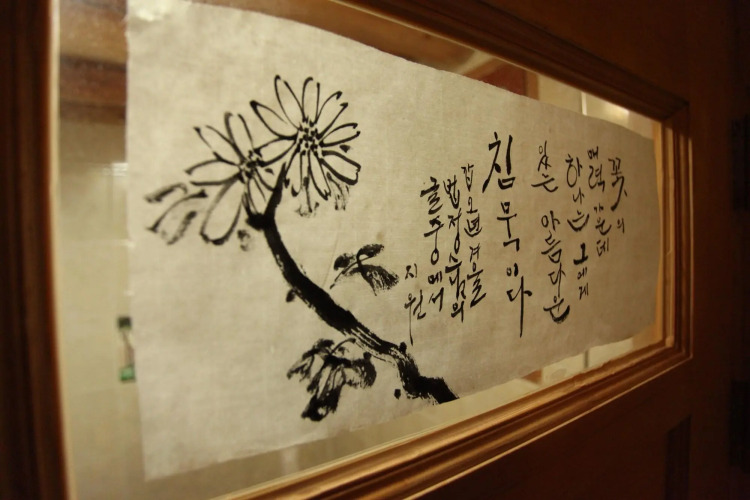 꽃의
매력 가운데
하나는 그에게
있는 아름다운
침묵이다
갑오년 겨울
법정스님의
글 중에서
지원